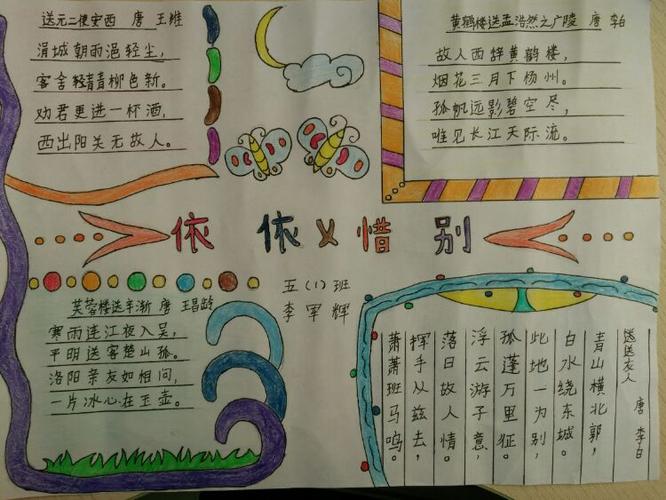 送元二使安西 唐 王维
渭城朝雨浥轻尘,
客舍青青柳色新。
劝君更进一杯酒,
西出阳关无故人。
黄鹤楼送孟浩然之广陵 唐 李白
故人西辞黄鹤楼,
烟花三月下杨州。
孤帆远影碧空尽,
唯见长江天际流。
依依惜别
五(1)班
李军辉
芙蓉楼送辛渐 唐 王昌龄
寒雨连江夜入吴,
平明送客楚山孤。
洛阳亲友如相问,
一片冰心在玉壶。
送友人 唐 李白
青山横北郭,
白水绕东城。
此地一为别,
孤蓬万里征。
浮云游子意,
落日故人情。
挥手从兹去,
萧萧班马鸣。